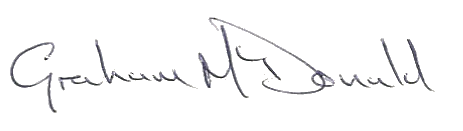 Graham McDonald